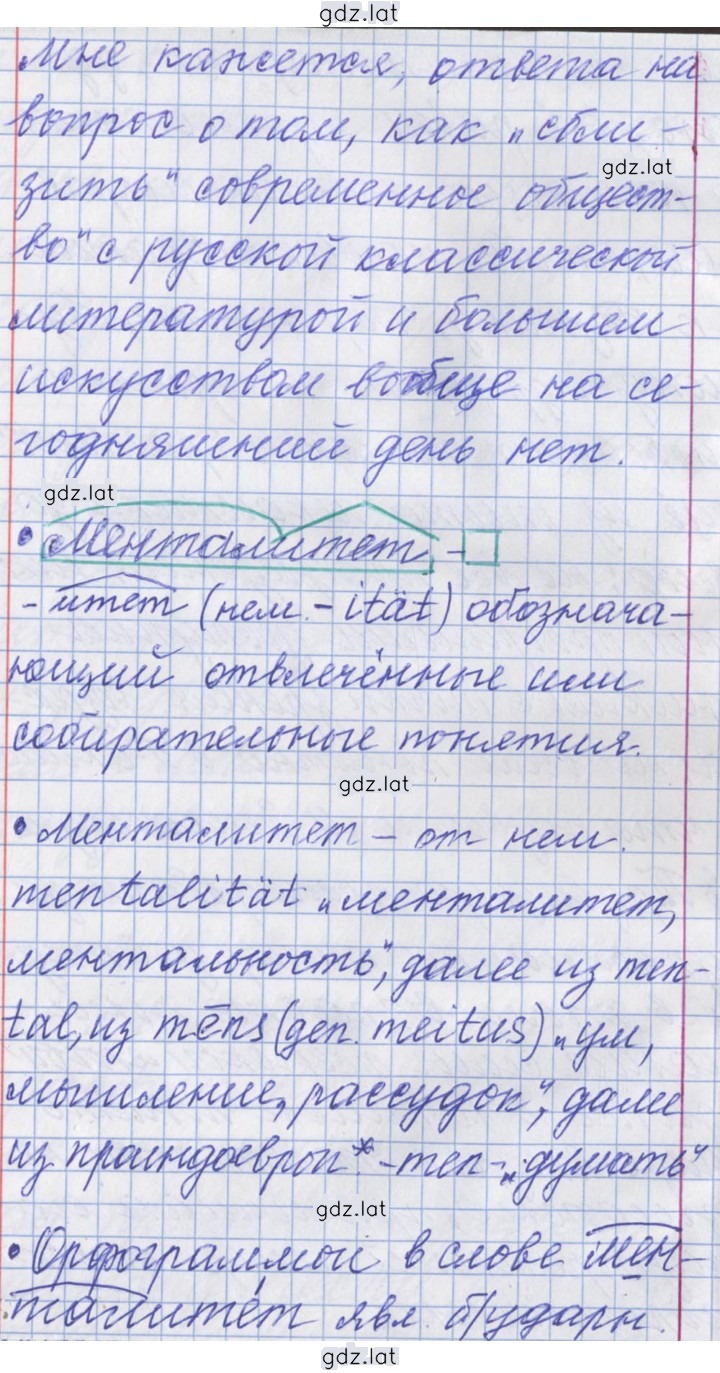 gdz.lat
Мне кажется, ответа на
вопрос о том, как „сбли-
gdz.lat
зить" современное общест-
во" с русской классической
литературой и большим
искусством вообще на се-
годняшний день нет.
gdz.lat
• Менталитет -
- итет (нем. - ität) обознача-
ющий отвлечённые или
собирательные понятия.
gdz.lat
• Менталитет – от нем.
mentalität „менталитет,
ментальность", далее из men-
tal, из mēns (gen. meitus) „ум,
мышление, рассудок", далее
из праиндоевроп.* -men- „думать"
gdz.lat
• Орфограммой в слове мен-
талитет явл. б/ударн.
gdz.lat